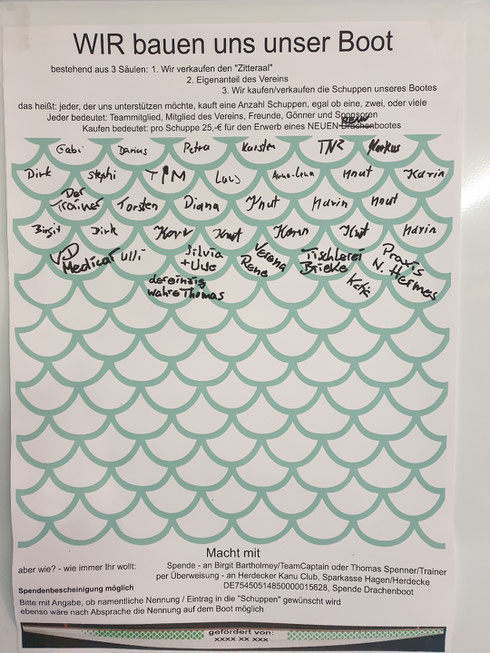 WIR bauen uns unser Boot
bestehend aus 3 Säulen: 1. Wir verkaufen den "Zitteraal"
2. Eigenanteil des Vereins
3. Wir kaufen/verkaufen die Schuppen unseres Bootes
das heißt: jeder, der uns unterstützen möchte, kauft eine Anzahl Schuppen, egal ob eine, zwei, oder viele
Jeder bedeutet: Teammitglied, Mitglied des Vereins, Freunde, Gönner und Sponsoren
Kaufen bedeutet: pro Schuppe 25,-€ für den Erwerb eines NEUEN Drachenbootes
Gabi Darius Petra Karsten TNR Markus
Dirk Stephi TIM Lars Anna-Lena Knut Karin
Der Trainer Torsten Diana Knut Karin Knut
Birgit Dirk Knut Knut Karin
VD Medical Ulli Silvia + Uwe Verena Rene Tischlerei Brieke Praxis N. Hermes
der einzig wahre Thomas Kati
Macht mit
aber wie? - wie immer Ihr wollt: Spende - an Birgit Bartholmey/TeamCaptain oder Thomas Spenner/Trainer
per Überweisung - an Herdecker Kanu Club, Sparkasse Hagen/Herdecke
Spendenbescheinigung möglich DE75450514850000015628, Spende Drachenboot
Bitte mit Angabe, ob namentliche Nennung / Eintrag in die "Schuppen" gewünscht wird
ebenso wäre nach Absprache die Nennung auf dem Boot möglich
gefördert von:
xxxx xx xxx